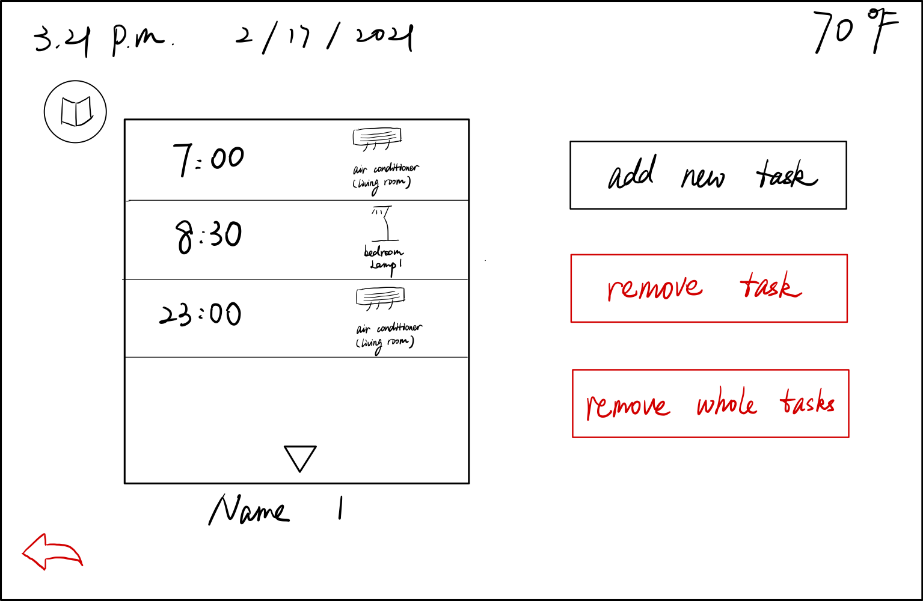 3.21 p.m. 2/17/2021
70°F
7:00
air conditioner
(living room)
8:30
bedroom
Lamp 1
23:00
air conditioner
(living room)
Name 1
add new task
remove task
remove whole tasks